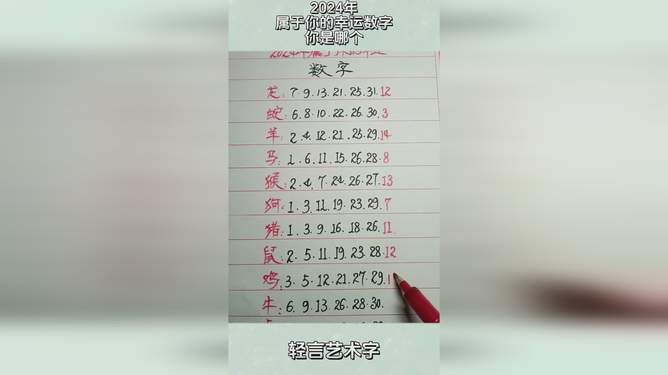 2024年
属于你的幸运数字
你是哪个
数字
龙:7.9.13.21.25.31.12
蛇:6.8.10.22.26.30.3
羊:2.4.12.21.25.29.14
马:1.6.11.15.26.28.8
猴:2.4.7.24.26.27.13
狗:1.3.11.19.23.29.7
猪:1.3.9.16.18.26.11
鼠:2.5.11.19.23.28.12
鸡:3.5.12.21.27.29.1
牛:6.9.13.26.28.30.
轻言艺术字